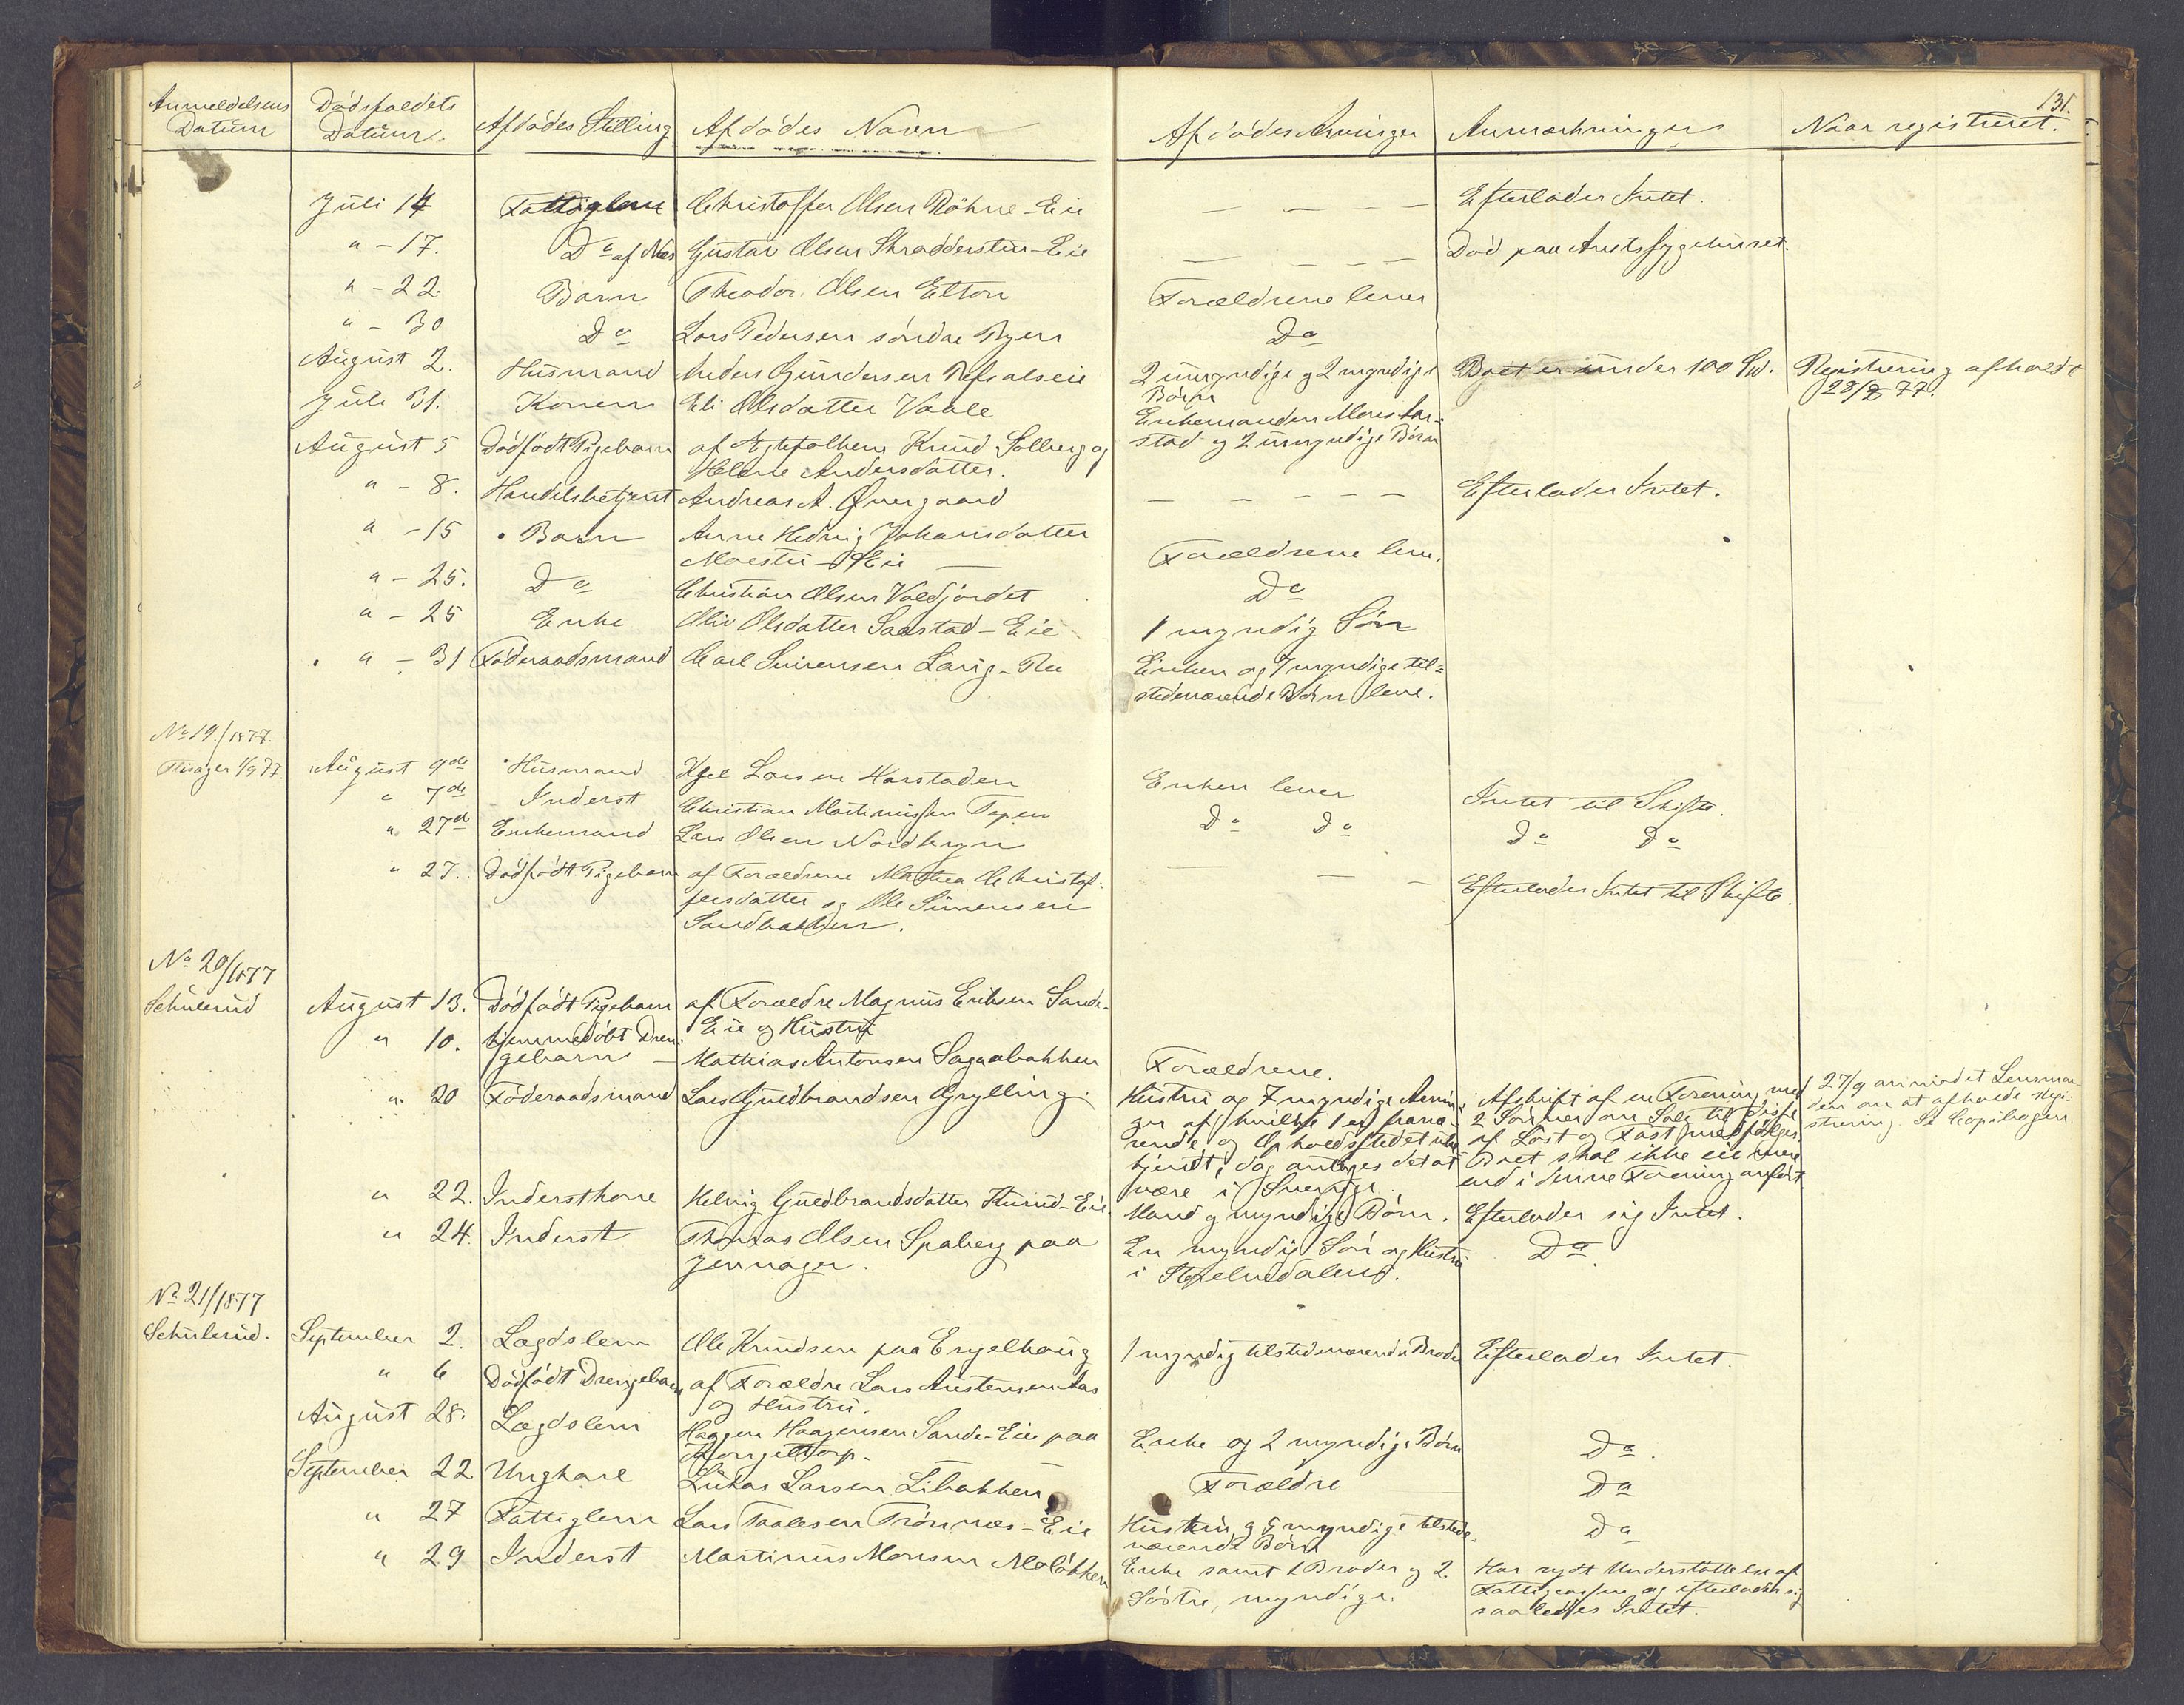 131.
Anmeldelsens Datum
Dødsfaldets Datum.
Afdødes Stilling
Afdødes Navn
Afdødes Arvinger
Anmærkninger
Naar registreret.
Juli 14 Fattiglem Christoffer Olsen Röhne-Eie — — — — Efterlader Intet.
" - 17. Do af Næs Gustav Olsen Skradderstu-Eie — — — — Död paa Amtssygehuset.
" - 22. Barn Theodor Olsen Elton Forældrene lever
" - 30 Do Lars Pedersen söndre Ryen Do
August 2. Husmand Anders Gundersen Refsalseie 2 umyndige og 2 myndige Börn Boet er under 100 Spd. Registrering afholdt 28/8 77.
Juli 31. Konen Eli Olsdatter Vaale Enkemanden Mons
stad og 2 umyndige Börn
August 5 Dödfödt Pigebarn af Egtefolkene Knud Solberg og
Helene Andersdatter.
" - 8. Handelsbetjent Andreas A. Övergaard — — — — — Efterlader Intet.
" - 15 Barn Anne Hedvig Johansdatter
Moestu-Eie — Forældrene leve.
" - 25. Do Christian Olsen Voldjordet Do
" - 25 Enke Oliv Olsdatter Saastad-Eie 1 myndig Sön
" - 31 Föderaadsmand Carl Simensen Larig- Enken og 7 myndige til=
stedeværende Börn leve.
No 19/1877.
Disager 1/9 77. August 9de Husmand Kjel Larsen Harstaden Enken lever Intet til Skifte.
" 7de Inderst Christian Martinussen Topen Do Do Do Do
" 27d Enkemand Lars Olsen Nordbergn — — —
" 27. Dödfödt Pigebarn af Forældrene Mathea Christof-
fersdatter og Ole Simensen
Sandbakken. Efterlader Intet til Skifte.
No 20/1877
Schulerud August 13. Dödfödt Pigebarn af Forældre Magnus Eriksen Sande-
Eie og Hustru
" 10. hjemmedöbt Dren-
gebarn — Mathias Antonsen Sagaabakken Forældrene.
" 20 Föderaadsmand Lars Guldbrandsen Grylling. Hustru og 7 myndige Arvin-
ger af hvilke 1 er fravæ-
rende og Opholdsstedet ube-
kjendt; dog antages det at
være i Sverige.
Afskrift af en Forening med
2 Sönner om Salg til disse
af Löst og Fast medfölger.
Boet skal ikke eie mere
end i denne Forening anfört
27/9 anmodet Lensman-
den om at afholde Regi-
strering. Se Copibogen.
" 22. Indersthone Helvig Guldbrandsdatter Hurud-Eie. Mand og myndige Börn. Efterlader sig Intet.
" 24. Inderst Thomas Olsen Spaberg paa
Jennager. En myndig Sön og Hustru
i Do.
No 21/1877
Schulerud. September 2. Lægdslem Ole Knudsen paa Engelhaug 1 myndig tilstedeværende Broder Efterlader Intet.
" 6 Dödfödt Drengebarn af Forældre Lars Austensen Aas
og Hustru.
August 28. Lægdslem Haagen Haagensen Sande-Eie paa
Kongeltorp. Enke og 2 myndige Börn Do.
September 22 Ungkarl Lukas Larsen Libakken Forældre Do
" 27 Fattiglem Lars Taalesen Trönnæs-Eie Hustru og 5 myndige tilstede-
værende Börn Do
" 29 Inderst Martinus Monsen Molökken Enke samt 1 Broder og 2
Söstre, myndige. Har nydt Understöttelse af
Fattigcassen og efterlader sig
saaledes Intet.